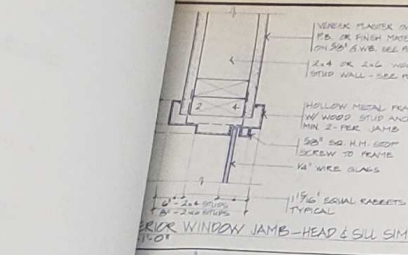 VENEER PLASTER O
P.B. OR FINISH MATE
ON 5/8" G.W.B. SEE
2x4 OR 2x6 WO
STUD WALL - SEE
HOLLOW METAL FRA
W/ WOOD STUD ANC
MIN. 2 - PER JAMB
5/8" SQ. H.M. STOP
SCREW TO FRAME
1/4" WIRE GLASS
2 4
6" - 2x4 STUDS
8" - 2x6 STUDS
EQUAL RABBETS
TYPICAL
ERIOR WINDOW JAMB - HEAD & SILL SIM
1'-0"